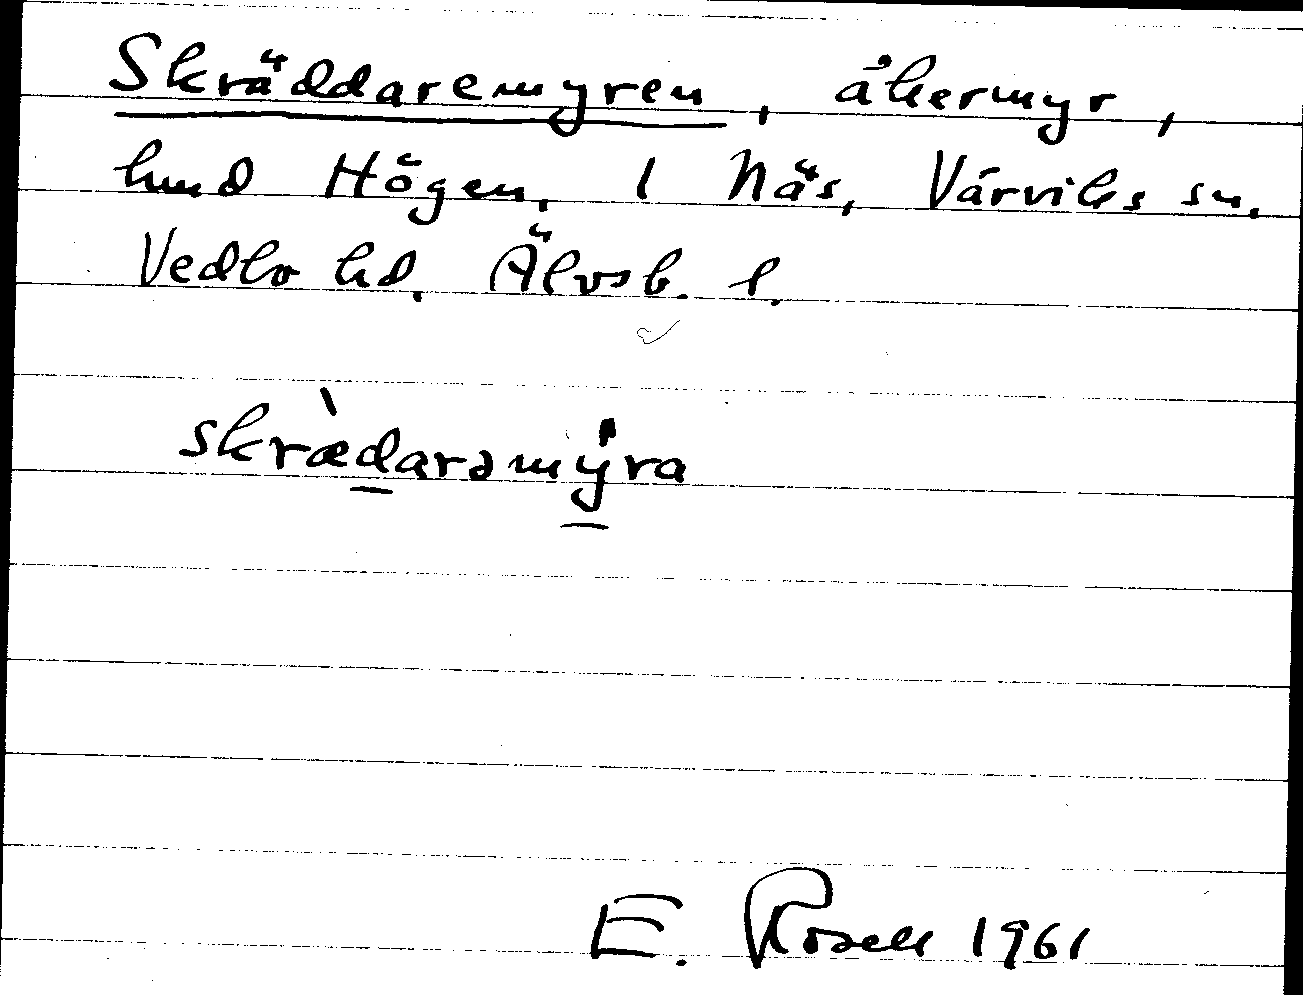 Skräddaremyren, åkermyr,
hmd Högen, 1 Näs, Värviks sn.
Vedbo hd. Älvsb. l.
skrædarəmýra
E. Rosell 1961